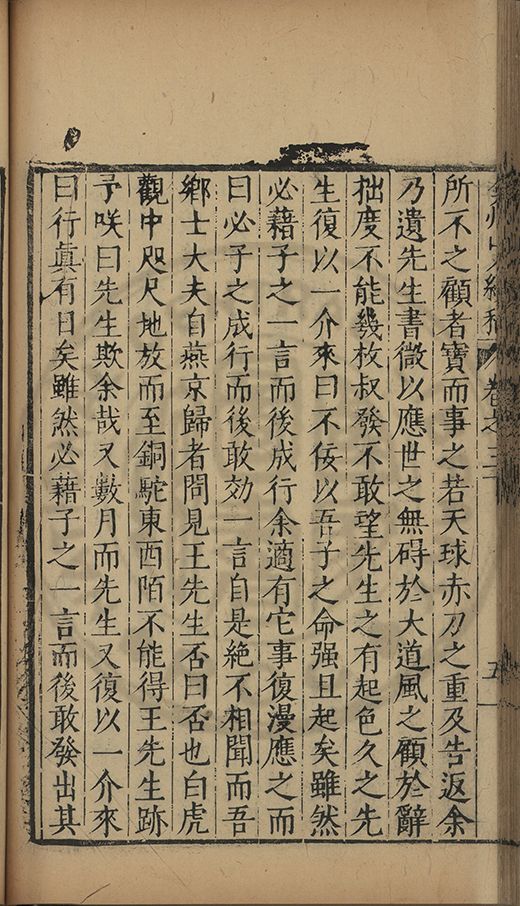 所不之顧者寶而事之若天球赤刀之重及告返余
乃遺先生書微以應世之無碍於大道風之顧於辭
拙度不能幾枚叔發不敢望先生之有起色久之先
生復以一介來曰不佞以吾子之命强且起矣雖然
必藉子之一言而後成行余適有它事復漫應之而
曰必子之成行而後敢効一言自是絶不相聞而吾
鄉士大夫自燕京歸者問見王先生否曰否也白虎
觀中咫尺地放而至銅駝東西陌不能得王先生跡
予咲曰先生欺余哉又數月而先生又復以一介來
曰行眞有日矣雖然必藉子之一言而後敢發出其